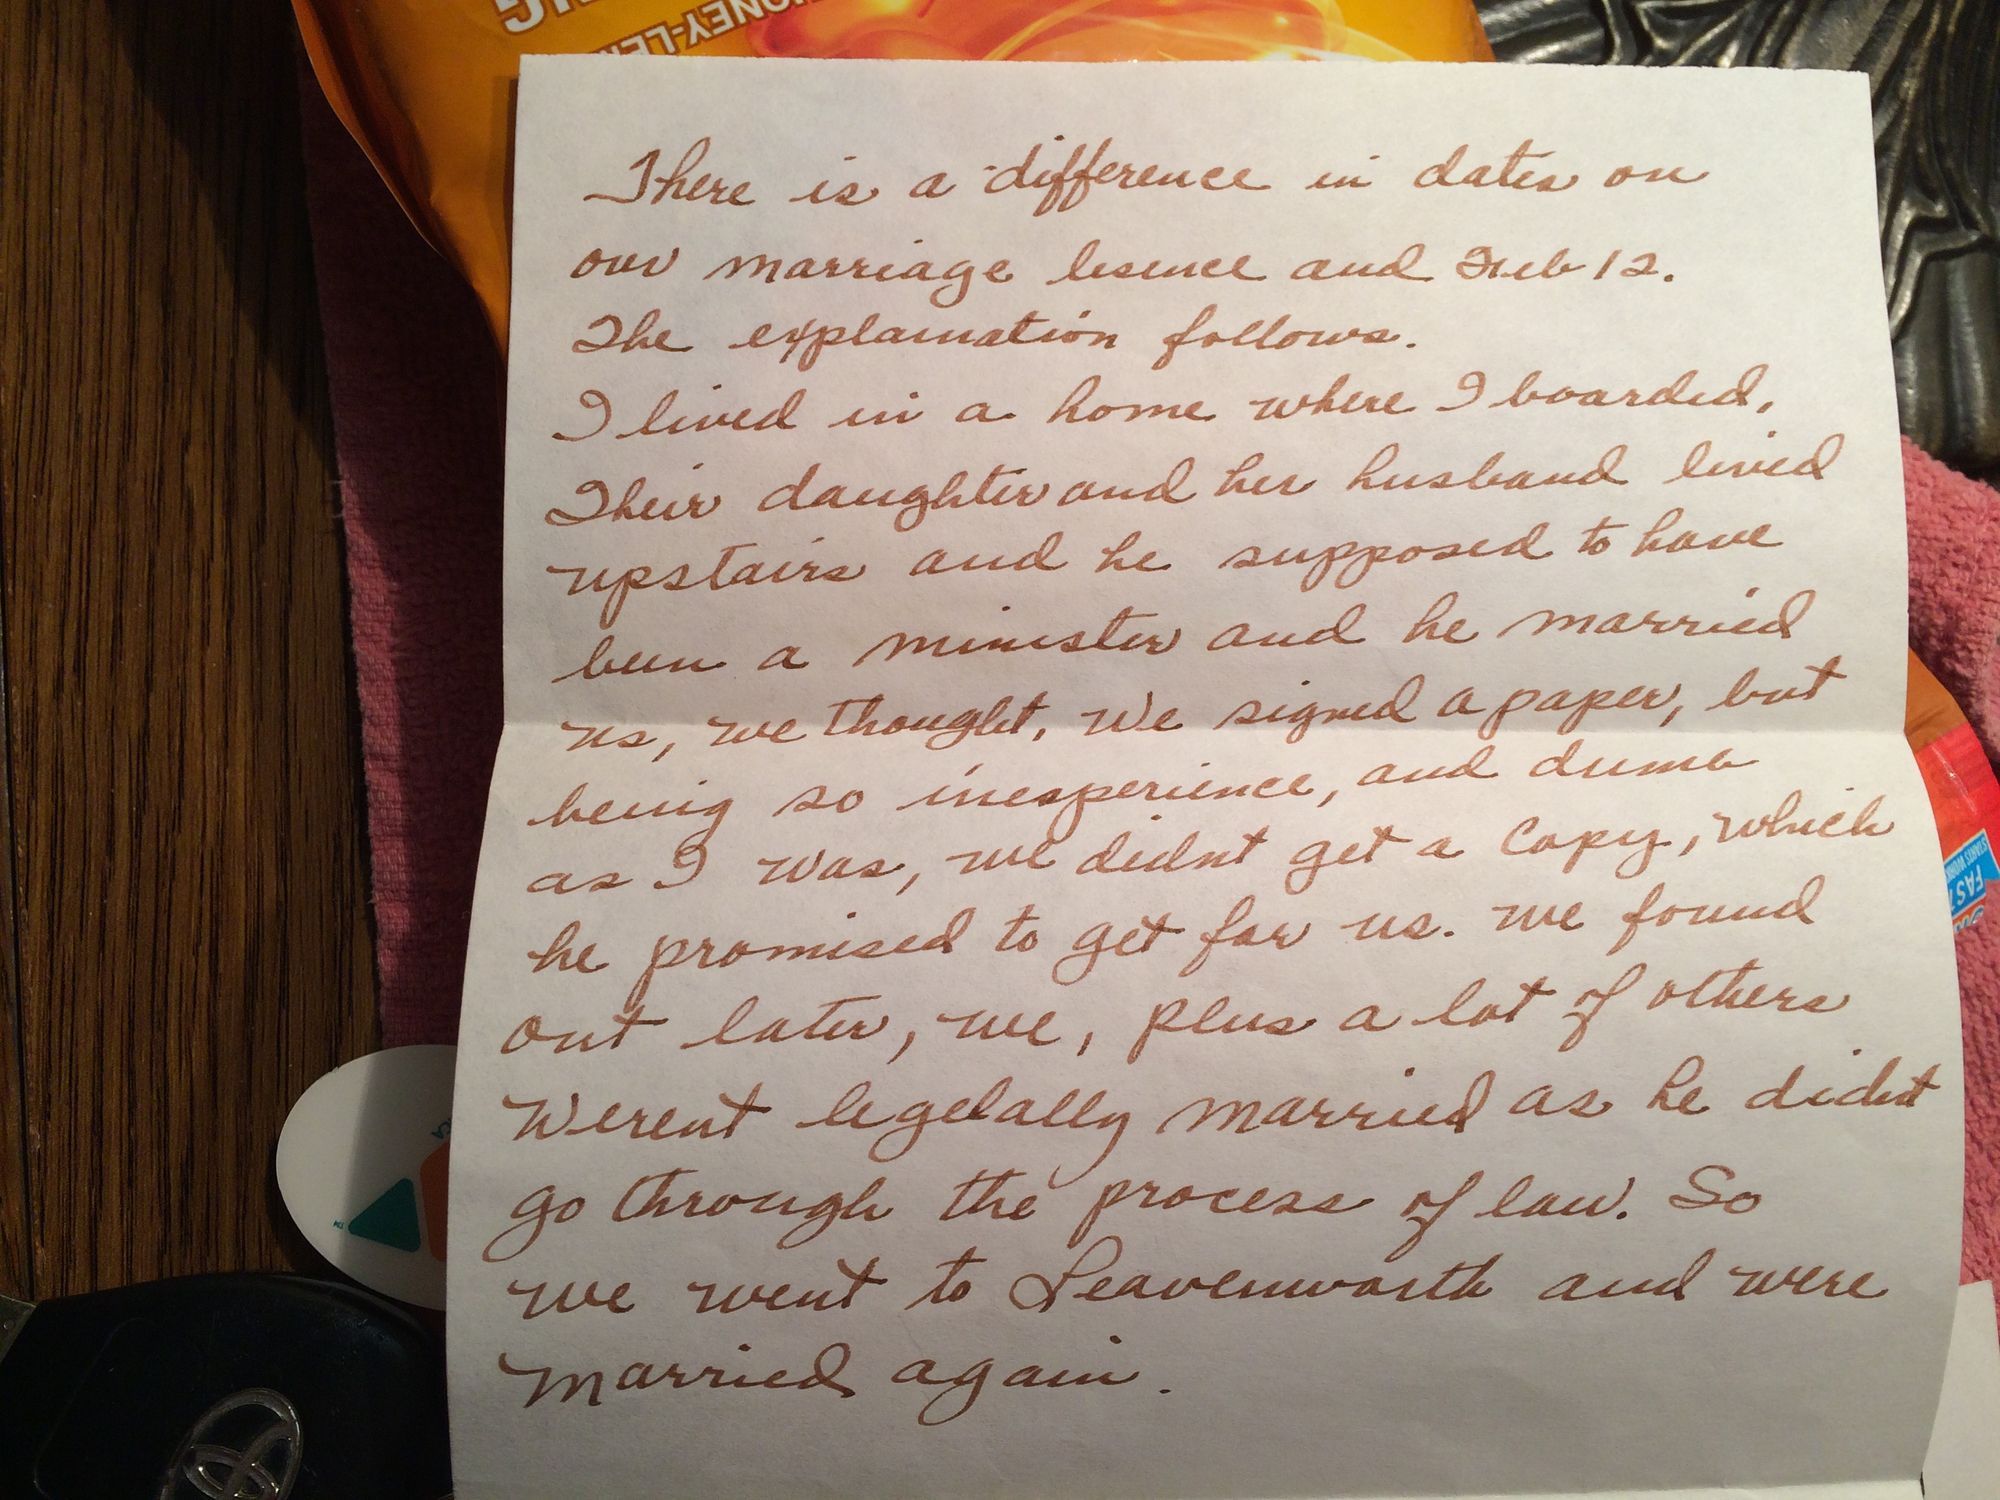 HONEY-LE
There is a difference in dates on
our marriage lisence and Feb 12.
The explaination follows.
I lived in a home where I boarded,
Their daughter and her husband lived
upstairs and he supposed to have
been a minister and he married
us, we thought, We signed a paper, but
being so inexperience, and dumb
as I was, we didnt get a copy, which
he promised to get for us. We found
out later, we, plus a lot of others
Werent legelally married as he didnt
go through the process of law. So
we went to Leavenworth and were
married again.
FAST
STARTS WORKI
TM